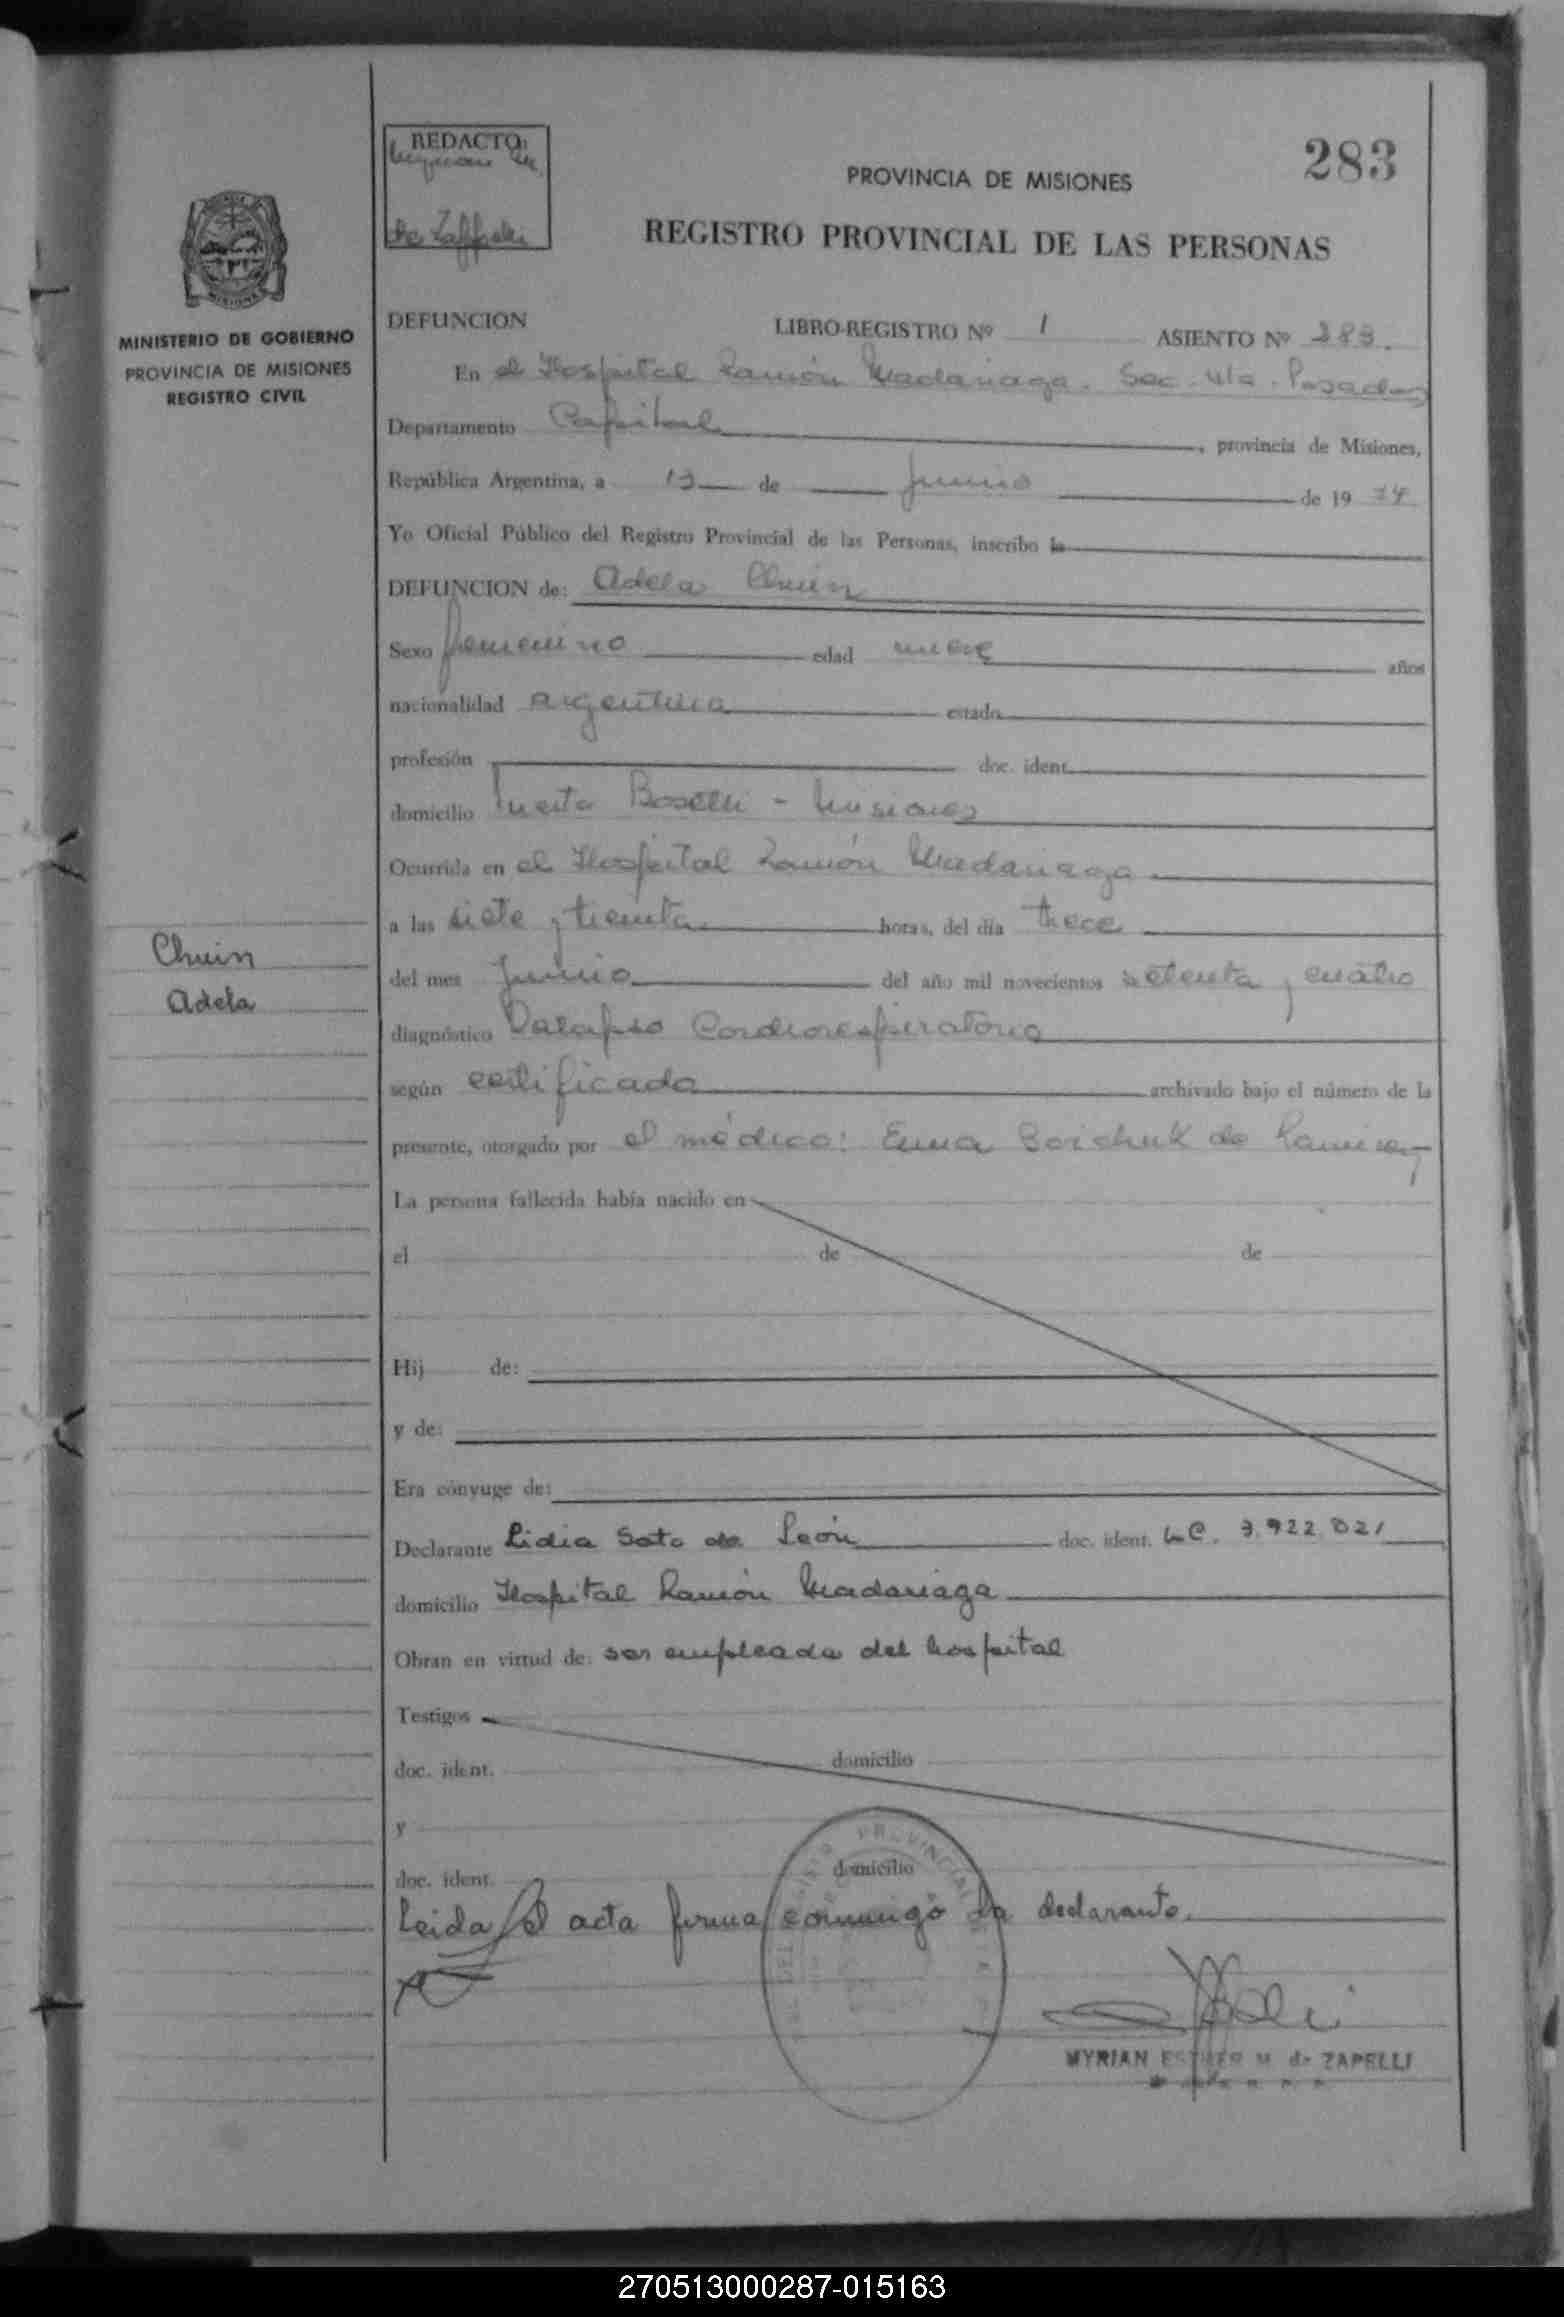 283
REDACTO:
de Zappelli
PROVINCIA DE MISIONES
REGISTRO PROVINCIAL DE LAS PERSONAS
MINISTERIO DE GOBIERNO
PROVINCIA DE MISIONES
REGISTRO CIVIL
DEFUNCION LIBRO-REGISTRO Nº 1 ASIENTO Nº 283.
En el Hospital Ramón Madariaga. Sec. 4ta. Posadas
Departamento Capital, provincia de Misiones,
República Argentina, a 13 de Junio de 1974
Yo Oficial Público del Registro Provincial de las Personas, inscribo la
DEFUNCION de: Adela Chuin
Sexo femenino edad nueve años
nacionalidad argentina estado
profesión doc. ident.
domicilio Puerto Bosetti - Misiones
Ocurrida en el Hospital Ramón Madariaga
a las siete y treinta horas, del día trece
Chuin
Adela
del mes Junio del año mil novecientos setenta y cuatro
diagnóstico Cardiorespiratorio
según certificado archivado bajo el número de la
presente, otorgado por el médico: Emma Boichuk de Ramirez
La persona fallecida había nacido en
el de de
Hij de:
y de:
Era cónyuge de:
Declarante Lidia Soto de León doc. ident. L.C. 3.922.021
domicilio Hospital Ramón Madariaga
Obran en virtud de: ser empleada del hospital
Testigos
doc. ident. domicilio
y
doc. ident. domicilio
Leida el acta firma conmigo la declarante.
MYRIAN ESTHER M. de ZAPELLI
270513000287-015163